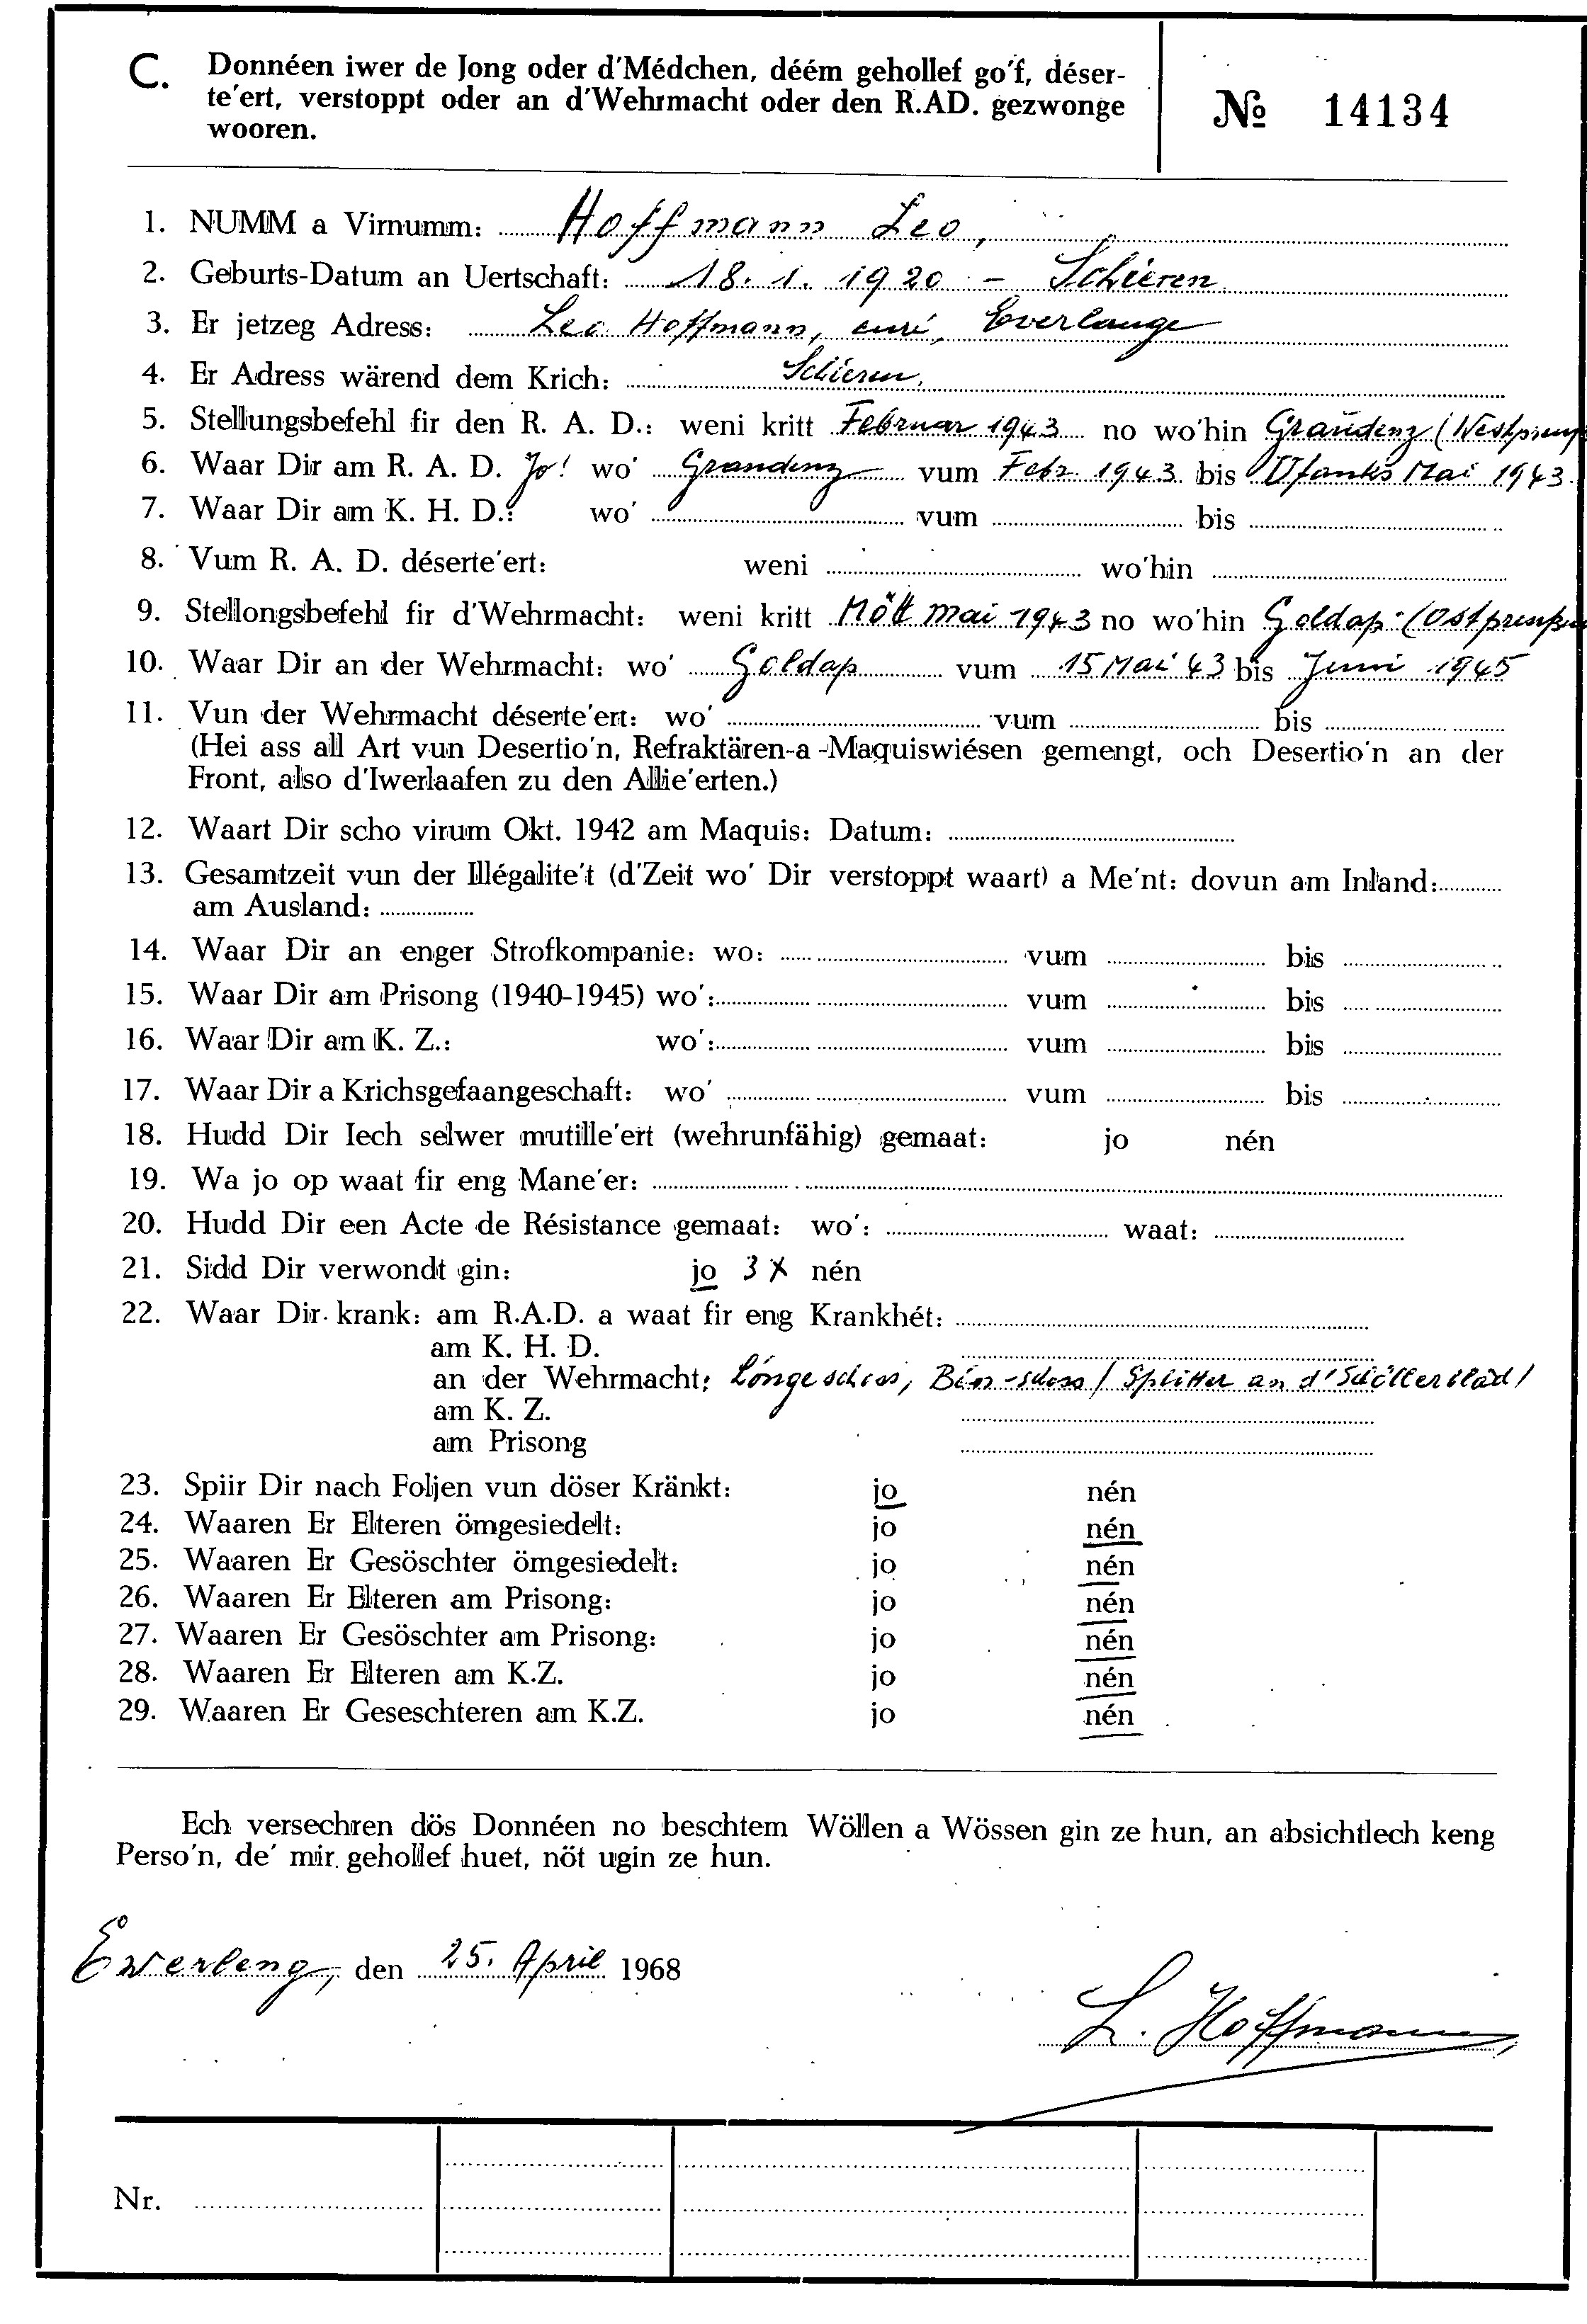 C. Donnéen iwer de Jong oder d'Médchen, déém gehollef go'f, déser-
te'ert, verstoppt oder an d'Wehrmacht oder den R.AD. gezwonge
wooren.
№ 14134
1. NUMM a Virnumm: Hoffmann Leo,
2. Geburts-Datum an Uertschaft: 18. 1. 1920 - Schieren
3. Er jetzeg Adress: Leo Hoffmann, curé, Everlange
4. Er Adress wärend dem Krich: Schieren.
5. Stellungsbefehl fir den R. A. D.: weni kritt Februar 1943 no wo'hin Graudenz (Westpreuß
6. Waar Dir am R. A. D. Jo! wo' Graudenz vum Febr. 1943 bis Ufanks Mai 1943.
7. Waar Dir am K. H. D.: wo' vum bis
8. Vum R. A. D. déserte'ert: weni wo'hin
9. Stellongsbefehl fir d'Wehrmacht: weni kritt Mött Mai 1943 no wo'hin Goldap (Ostpreußen
10. Waar Dir an der Wehrmacht: wo' Goldap vum 15 Mai 43 bis Juni 1945
11. Vun der Wehrmacht déserte'ert: wo' vum bis
(Hei ass all Art vun Desertio'n, Refraktären-a-Maquiswiésen gemengt, och Desertio'n an der
Front, also d'Iwerlaafen zu den Allie'erten.)
12. Waart Dir scho virum Okt. 1942 am Maquis: Datum:
13. Gesamtzeit vun der Illégalite't (d'Zeit wo' Dir verstoppt waart) a Me'nt: dovun am Inland:
am Ausland:
14. Waar Dir an enger Strofkompanie: wo: vum bis
15. Waar Dir am Prisong (1940-1945) wo': vum bis
16. Waar Dir am K. Z.: wo': vum bis
17. Waar Dir a Krichsgefaangeschaft: wo' vum bis
18. Hudd Dir Iech selwer mutille'ert (wehrunfähig) gemaat: jo nén
19. Wa jo op waat fir eng Mane'er:
20. Hudd Dir een Acte de Résistance gemaat: wo': waat:
21. Sidd Dir verwondt gin: jo 3 X nén
22. Waar Dir krank: am R.A.D. a waat fir eng Krankhét:
am K. H. D.
an der Wehrmacht: Longeschoss, Splitter an d'
am K. Z.
am Prisong
23. Spiir Dir nach Foljen vun döser Kränkt: jo nén
24. Waaren Er Elteren ömgesiedelt: jo nén
25. Waaren Er Gesöschter ömgesiedelt: jo nén
26. Waaren Er Elteren am Prisong: jo nén
27. Waaren Er Gesöschter am Prisong: jo nén
28. Waaren Er Elteren am K.Z. jo nén
29. Waaren Er Geseschteren am K.Z. jo nén
Ech versechren dös Donnéen no beschtem Wöllen a Wössen gin ze hun, an absichtlech keng
Perso'n, de' mir gehollef huet, nöt ugin ze hun.
Ewerleng, den 25. April 1968
L. Hoffmann
Nr.